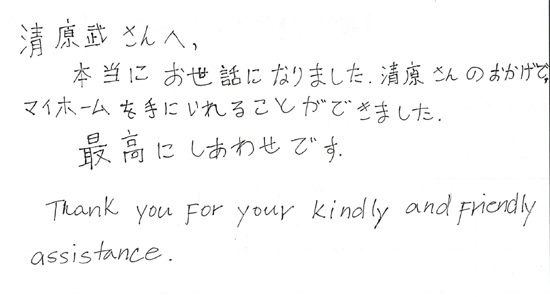 清原武さんへ,
本当にお世話になりました.清原さんのおかげで,
マイホームを手にいれることができました.
最高にしあわせです.
Thank you for your kindly and friendly
assistance.